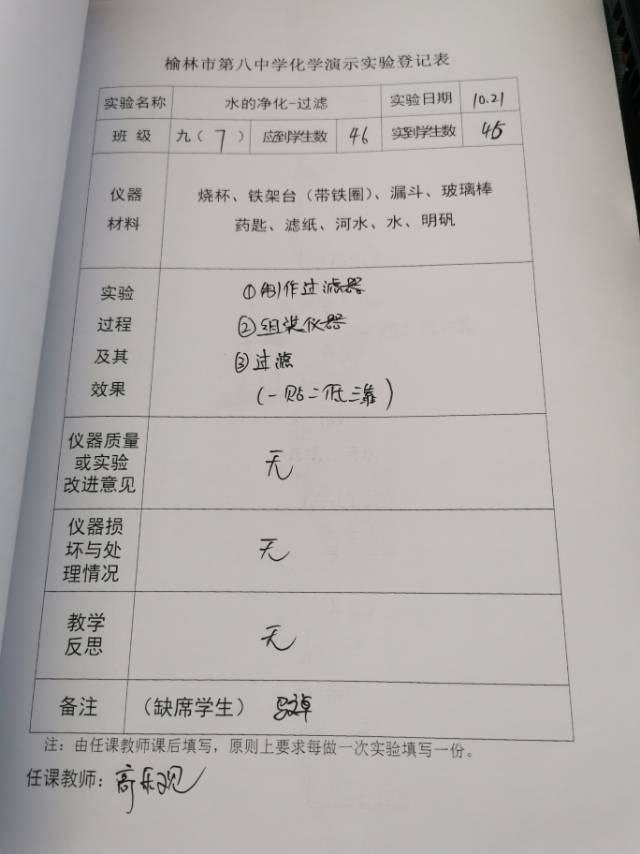 榆林市第八中学化学演示实验登记表
实验名称 水的净化-过滤 实验日期 10.21
班 级 九（7） 应到学生数 46 实到学生数 45
仪器 烧杯、铁架台（带铁圈）、漏斗、玻璃棒
材料 药匙、滤纸、河水、水、明矾
实验 ①制作过滤器
过程 ②组装仪器
及其 ③过滤
效果 （一贴二低三靠）
仪器质量
或实验 无
改进意见
仪器损
坏与处 无
理情况
教学
反思 无
备注 （缺席学生）
注：由任课教师课后填写，原则上要求每做一次实验填写一份。
任课教师：高乐观